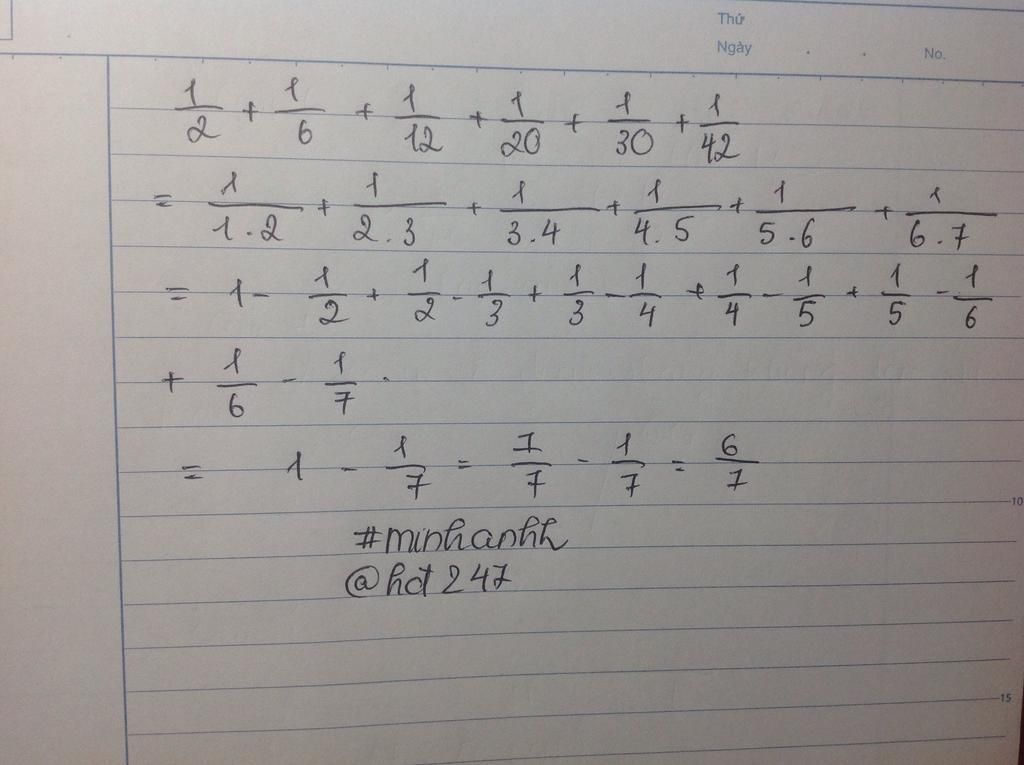 Thứ
Ngày . . No.
1/2 + 1/6 + 1/12 + 1/20 + 1/30 + 1/42
= 1/1.2 + 1/2.3 + 1/3.4 + 1/4.5 + 1/5.6 + 1/6.7
= 1 - 1/2 + 1/2 - 1/3 + 1/3 - 1/4 + 1/4 - 1/5 + 1/5 - 1/6
+ 1/6 - 1/7 .
= 1 - 1/7 = 7/7 - 1/7 = 6/7
10
#minhanhh
@hdt247
15